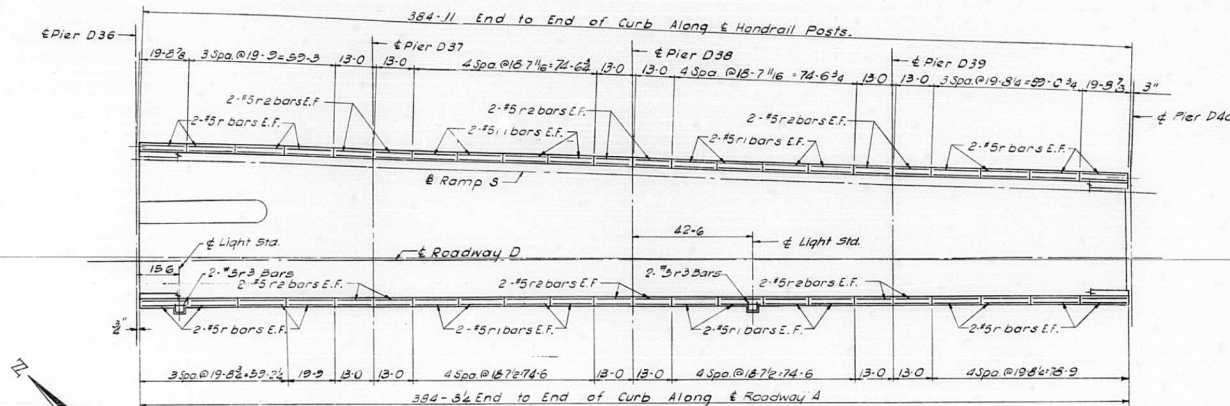 384-11 End to End of Curb Along ℄ Handrail Posts.
℄ Pier D36
℄ Pier D37
℄ Pier D38
℄ Pier D39
19-8⅞ 3 Spa.@19-9=59-3 13-0 13-0 4 Spa.@18-7 11/16=74-6¾ 13-0 13-0 4 Spa.@18-7 11/16=74-6¾ 13-0 13-0 3 Spa.@19-8¼=59-0¾ 19-8⅞ 3"
℄ Pier D40
2-#5r2 bars E.F. 2-#5r2 bars E.F. 2-#5r2 bars E.F.
2-#5r bars E.F. 2-#5r1 bars E.F. 2-#5r1 bars E.F. 2-#5r bars E.F.
℄ Ramp S
42-6
℄ Light Sta. ℄ Light Sta.
℄ Roadway D
15-6
2-#5r3 Bars 2-#5r3 Bars
2-#5r2 bars E.F. 2-#5r2 bars E.F. 2-#5r2 bars E.F.
2-#5r bars E.F. 2-#5r1 bars E.F. 2-#5r1 bars E.F. 2-#5r bars E.F.
Z
3 Spa.@19-8¾=59-2¼ 19-9 13-0 13-0 4 Spa.@18-7½=74-6 13-0 13-0 4 Spa.@18-7½=74-6 13-0 13-0 4 Spa.@19-8¼=78-9
384-3¼ End to End of Curb Along ℄ Roadway A